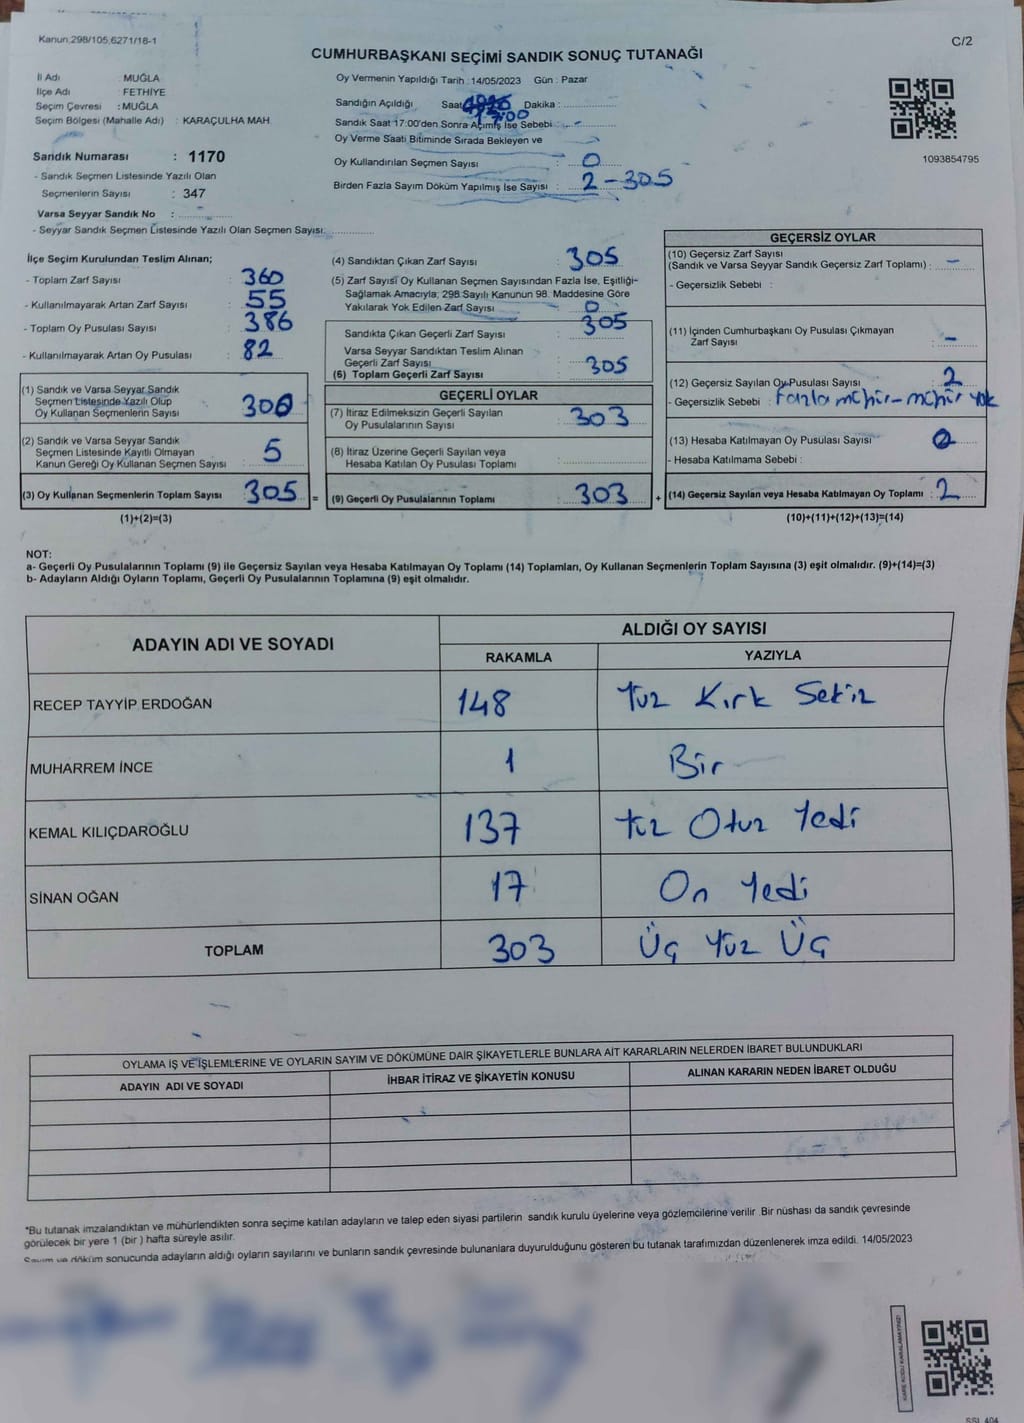 Kanun;298/105,6271/18-1
C/2
CUMHURBAŞKANI SEÇİMİ SANDIK SONUÇ TUTANAĞI
İl Adı : MUĞLA
İlçe Adı : FETHİYE
Seçim Çevresi : MUĞLA
Seçim Bölgesi (Mahalle Adı) : KARAÇULHA MAH.
Sandık Numarası : 1170
- Sandık Seçmen Listesinde Yazılı Olan
Seçmenlerin Sayısı : 347
Varsa Seyyar Sandık No :
- Seyyar Sandık Seçmen Listesinde Yazılı Olan Seçmen Sayısı:
Oy Vermenin Yapıldığı Tarih : 14/05/2023 Gün : Pazar
Sandığın Açıldığı Saat Dakika :
17:00
Sandık Saat 17:00'den Sonra Açılmış İse Sebebi :
Oy Verme Saati Bitiminde Sırada Bekleyen ve
Oy Kullandırılan Seçmen Sayısı : 0
Birden Fazla Sayım Döküm Yapılmış İse Sayısı : 2-305
1093854795
İlçe Seçim Kurulundan Teslim Alınan;
- Toplam Zarf Sayısı : 360
- Kullanılmayarak Artan Zarf Sayısı : 55
- Toplam Oy Pusulası Sayısı : 386
- Kullanılmayarak Artan Oy Pusulası : 82
(1) Sandık ve Varsa Seyyar Sandık
Seçmen Listesinde Yazılı Olup
Oy Kullanan Seçmenlerin Sayısı : 300
(2) Sandık ve Varsa Seyyar Sandık
Seçmen Listesinde Kayıtlı Olmayan
Kanun Gereği Oy Kullanan Seçmen Sayısı : 5
(3) Oy Kullanan Seçmenlerin Toplam Sayısı : 305 =
(1)+(2)=(3)
(4) Sandıktan Çıkan Zarf Sayısı : 305
(5) Zarf Sayısı Oy Kullanan Seçmen Sayısından Fazla İse, Eşitliği-
Sağlamak Amacıyla, 298 Sayılı Kanunun 98. Maddesine Göre
Yakılarak Yok Edilen Zarf Sayısı : 0
Sandıkta Çıkan Geçerli Zarf Sayısı : 305
Varsa Seyyar Sandıktan Teslim Alınan
Geçerli Zarf Sayısı
(6) Toplam Geçerli Zarf Sayısı : 305
GEÇERLİ OYLAR
(7) İtiraz Edilmeksizin Geçerli Sayılan
Oy Pusulalarının Sayısı : 303
(8) İtiraz Üzerine Geçerli Sayılan veya
Hesaba Katılan Oy Pusulası Toplamı :
(9) Geçerli Oy Pusulalarının Toplamı : 303 +
GEÇERSİZ OYLAR
(10) Geçersiz Zarf Sayısı
(Sandık ve Varsa Seyyar Sandık Geçersiz Zarf Toplamı) : -
- Geçersizlik Sebebi :
(11) İçinden Cumhurbaşkanı Oy Pusulası Çıkmayan
Zarf Sayısı : -
(12) Geçersiz Sayılan Oy Pusulası Sayısı : 2
- Geçersizlik Sebebi : Fazla mühür-mühür yok
(13) Hesaba Katılmayan Oy Pusulası Sayısı : 0
- Hesaba Katılmama Sebebi :
(14) Geçersiz Sayılan veya Hesaba Katılmayan Oy Toplamı : 2
(10)+(11)+(12)+(13)=(14)
NOT:
a- Geçerli Oy Pusulalarının Toplamı (9) ile Geçersiz Sayılan veya Hesaba Katılmayan Oy Toplamı (14) Toplamları, Oy Kullanan Seçmenlerin Toplam Sayısına (3) eşit olmalıdır. (9)+(14)=(3)
b- Adayların Aldığı Oyların Toplamı, Geçerli Oy Pusulalarının Toplamına (9) eşit olmalıdır.
ADAYIN ADI VE SOYADI
ALDIĞI OY SAYISI
RAKAMLA YAZIYLA
RECEP TAYYİP ERDOĞAN 148 Yüz Kırk Sekiz
MUHARREM İNCE 1 Bir
KEMAL KILIÇDAROĞLU 137 Yüz Otuz Yedi
SİNAN OĞAN 17 On Yedi
TOPLAM 303 Üç Yüz Üç
OYLAMA İŞ VE İŞLEMLERİNE VE OYLARIN SAYIM VE DÖKÜMÜNE DAİR ŞİKAYETLERLE BUNLARA AİT KARARLARIN NELERDEN İBARET BULUNDUKLARI
ADAYIN ADI VE SOYADI İHBAR İTİRAZ VE ŞİKAYETİN KONUSU ALINAN KARARIN NEDEN İBARET OLDUĞU
*Bu tutanak imzalandıktan ve mühürlendikten sonra seçime katılan adayların ve talep eden siyasi partilerin sandık kurulu üyelerine veya gözlemcilerine verilir. Bir nüshası da sandık çevresinde
görülecek bir yere 1 (bir ) hafta süreyle asılır.
Sayım ve döküm sonucunda adayların aldığı oyların sayılarını ve bunların sandık çevresinde bulunanlara duyurulduğunu gösteren bu tutanak tarafımızdan düzenlenerek imza edildi. 14/05/2023
KARE KODU KARALAMAYINIZ!